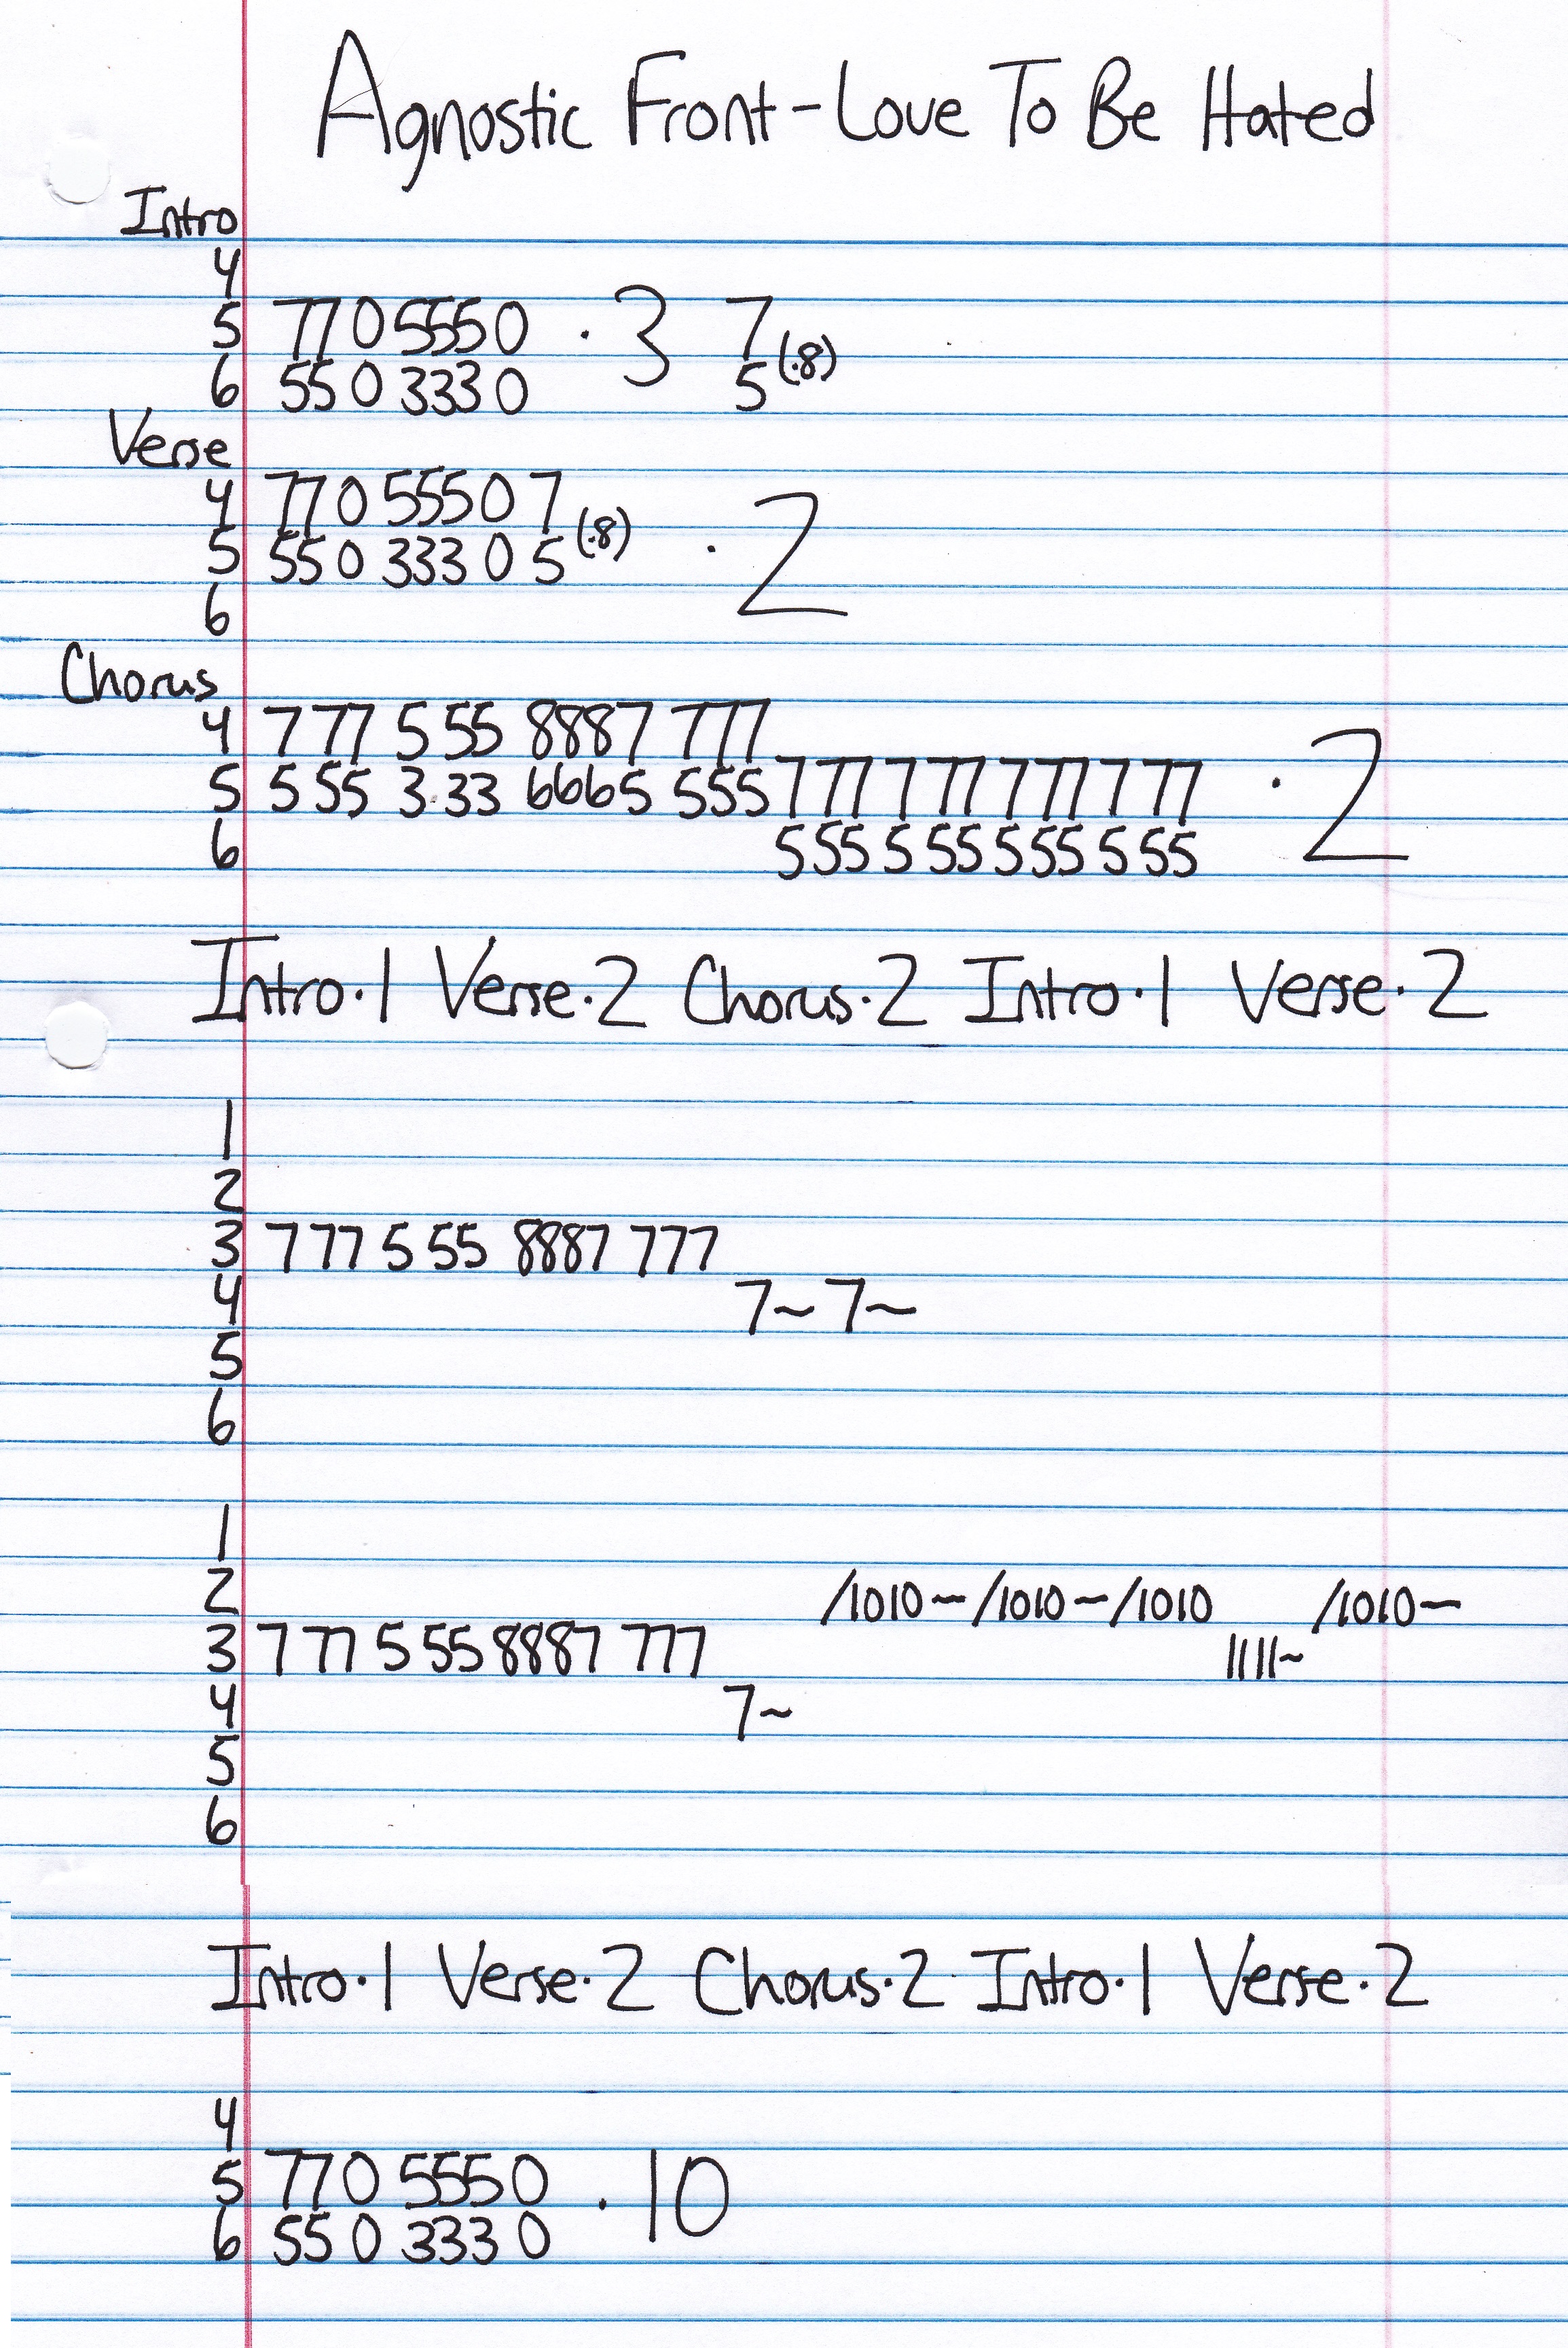 Agnostic Front-Love To Be Hated
Intro
4
5 7705550 · 3 7
6 5503330 5 (·8)
Verse
4 77055507
5 55033305 (·8) · 2
6
Chorus
4 7 77 5 55 8887 777
5 5 55 3 33 6665 555 777 7 77 777 7 77 · 2
6 555 5 55 555 5 55
Intro·1 Verse·2 Chorus·2 Intro·1 Verse·2
1
2
3 7 77 5 55 8887 777
4 7~ 7~
5
6
1
2 /1010~ /1010~ /1010 /1010~
3 7 77 5 55 8887 777 1111~
4 7~
5
6
Intro·1 Verse·2 Chorus·2 Intro·1 Verse·2
4
5 770 5550 · 10
6 550 3330